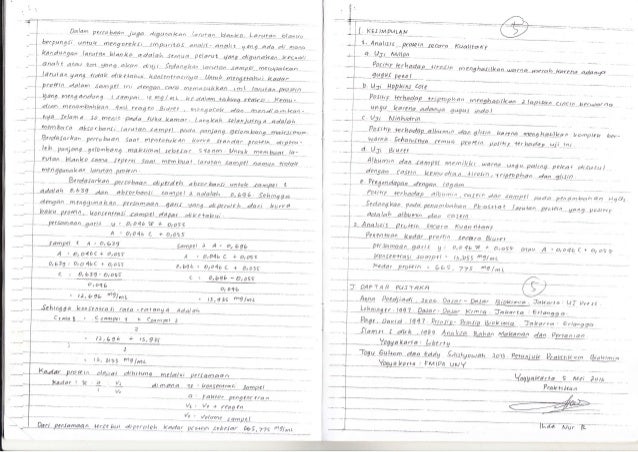 Dalam percobaan juga digunakan larutan blanko. Larutan blanko
berfungsi untuk mengoreksi impuritas analit-analit yang ada di mana
kandungan larutan blanko adalah semua pelarut yang digunakan kecuali
analit atau zat yang akan diuji. Sedangkan larutan sampel merupakan
larutan yang tidak diketahui konsentrasinya. Untuk mengetahui kadar
protein dalam sampel ini dengan cara memasukkan 1 mL larutan protein
yang mengandung sampel mg/mL ke dalam tabung reaksi. Kemu-
dian menambahkan 4 mL reagen biuret, mengocok dan mendiamkan-
nya selama 30 menit pada suhu kamar. Langkah selanjutnya adalah
membaca absorbansi larutan sampel pada panjang gelombang maksimum.
Berdasarkan percobaan saat menentukan kurva standar protein diperoleh
leh panjang gelombang maksimal sebesar nm. Untuk membuat la-
rutan blanko sama seperti saat membuat larutan sampel namun tidak
menggunakan larutan protein.
Berdasarkan percobaan diperoleh absorbansi untuk sampel 1
adalah 0,639 dan absorbansi sampel 2 adalah 0,696 Sehingga
dengan menggunakan persamaan garis yang diperoleh dari kurva
baku protein, konsentrasi sampel dapat diketahui
persamaan garis y = 0,046 x + 0,055
A = 0,046 C + 0,055
Sampel 1 A = 0,639
A = 0,046 C + 0,055
0,639 = 0,046 C + 0,055
C = 0,639 - 0,055
0,046
= 12,696 mg/mL
Sampel 2 A = 0,696
A = 0,046 C + 0,055
0,696 = 0,046 C + 0,055
C = 0,696 - 0,055
0,046
= 13,935 mg/mL
Sehingga konsentrasi rata-ratanya adalah
C rata2 = C sampel 1 + C sampel 2
2
= 12,696 + 13,935
2
= mg/mL
Kadar protein dapat dihitung melalui persamaan
Kadar = x a V1
1 V2
dimana x = konsentrasi sampel
a = faktor pengenceran
V1 = V2 + reagen
V2 = volume sampel
Dari persamaan tersebut diperoleh kadar protein sebesar 665,775 mg/mL
5
I. KESIMPULAN
1. Analisis protein secara Kualitatif
a. Uji Millon
Positif terhadap tirosin menghasilkan warna merah karena adanya
gugus fenol
b. Uji Hopkins Cole
Positif terhadap triptophan menghasilkan 2 lapisan cincin berwarna
ungu karena adanya gugus indol
c. Uji Ninhidrin
Positif terhadap albumin dan glisin karena menghasilkan kompleks ber-
warna. Seharusnya semua protein positif terhadap uji ini
d. Uji Biuret
Albumin dan sampel memiliki warna ungu paling pekat disusul
dengan casein kemudian tirosin, triptophan, dan glisin
e. Pengendapan dengan logam
Positif terhadap albumin, casein dan sampel pada penambahan HgCl2
Sedangkan pada penambahan Pb asetat larutan protein yang positif
adalah albumin dan casein
2. Analisis protein secara Kuantitatif
Penentuan kadar protein secara Biuret
persamaan garis y = 0,046 x + 0,055 atau A = 0,046 C + 0,055
konsentrasi sampel = mg/mL
Kadar protein = 665,775 mg/mL
5
J. DAFTAR PUSTAKA
Anna Poedjiadi. Dasar-Dasar Biokimia. Jakarta: UI Press
Lehninger. 1997. Dasar-Dasar Kimia. Jakarta: Erlangga
Page, David. 1997. Prinsip-Prinsip Biokimia. Jakarta: Erlangga
Slamet S dkk. 1989. Analisa Bahan Makanan dan Pertanian
Yogyakarta: Liberty
Togu Gultom dan Eddy Sulistyowati. Petunjuk Praktikum Biokimia
Yogyakarta: FMIPA UNY
Yogyakarta 5 Mei
Praktikan
Nur R